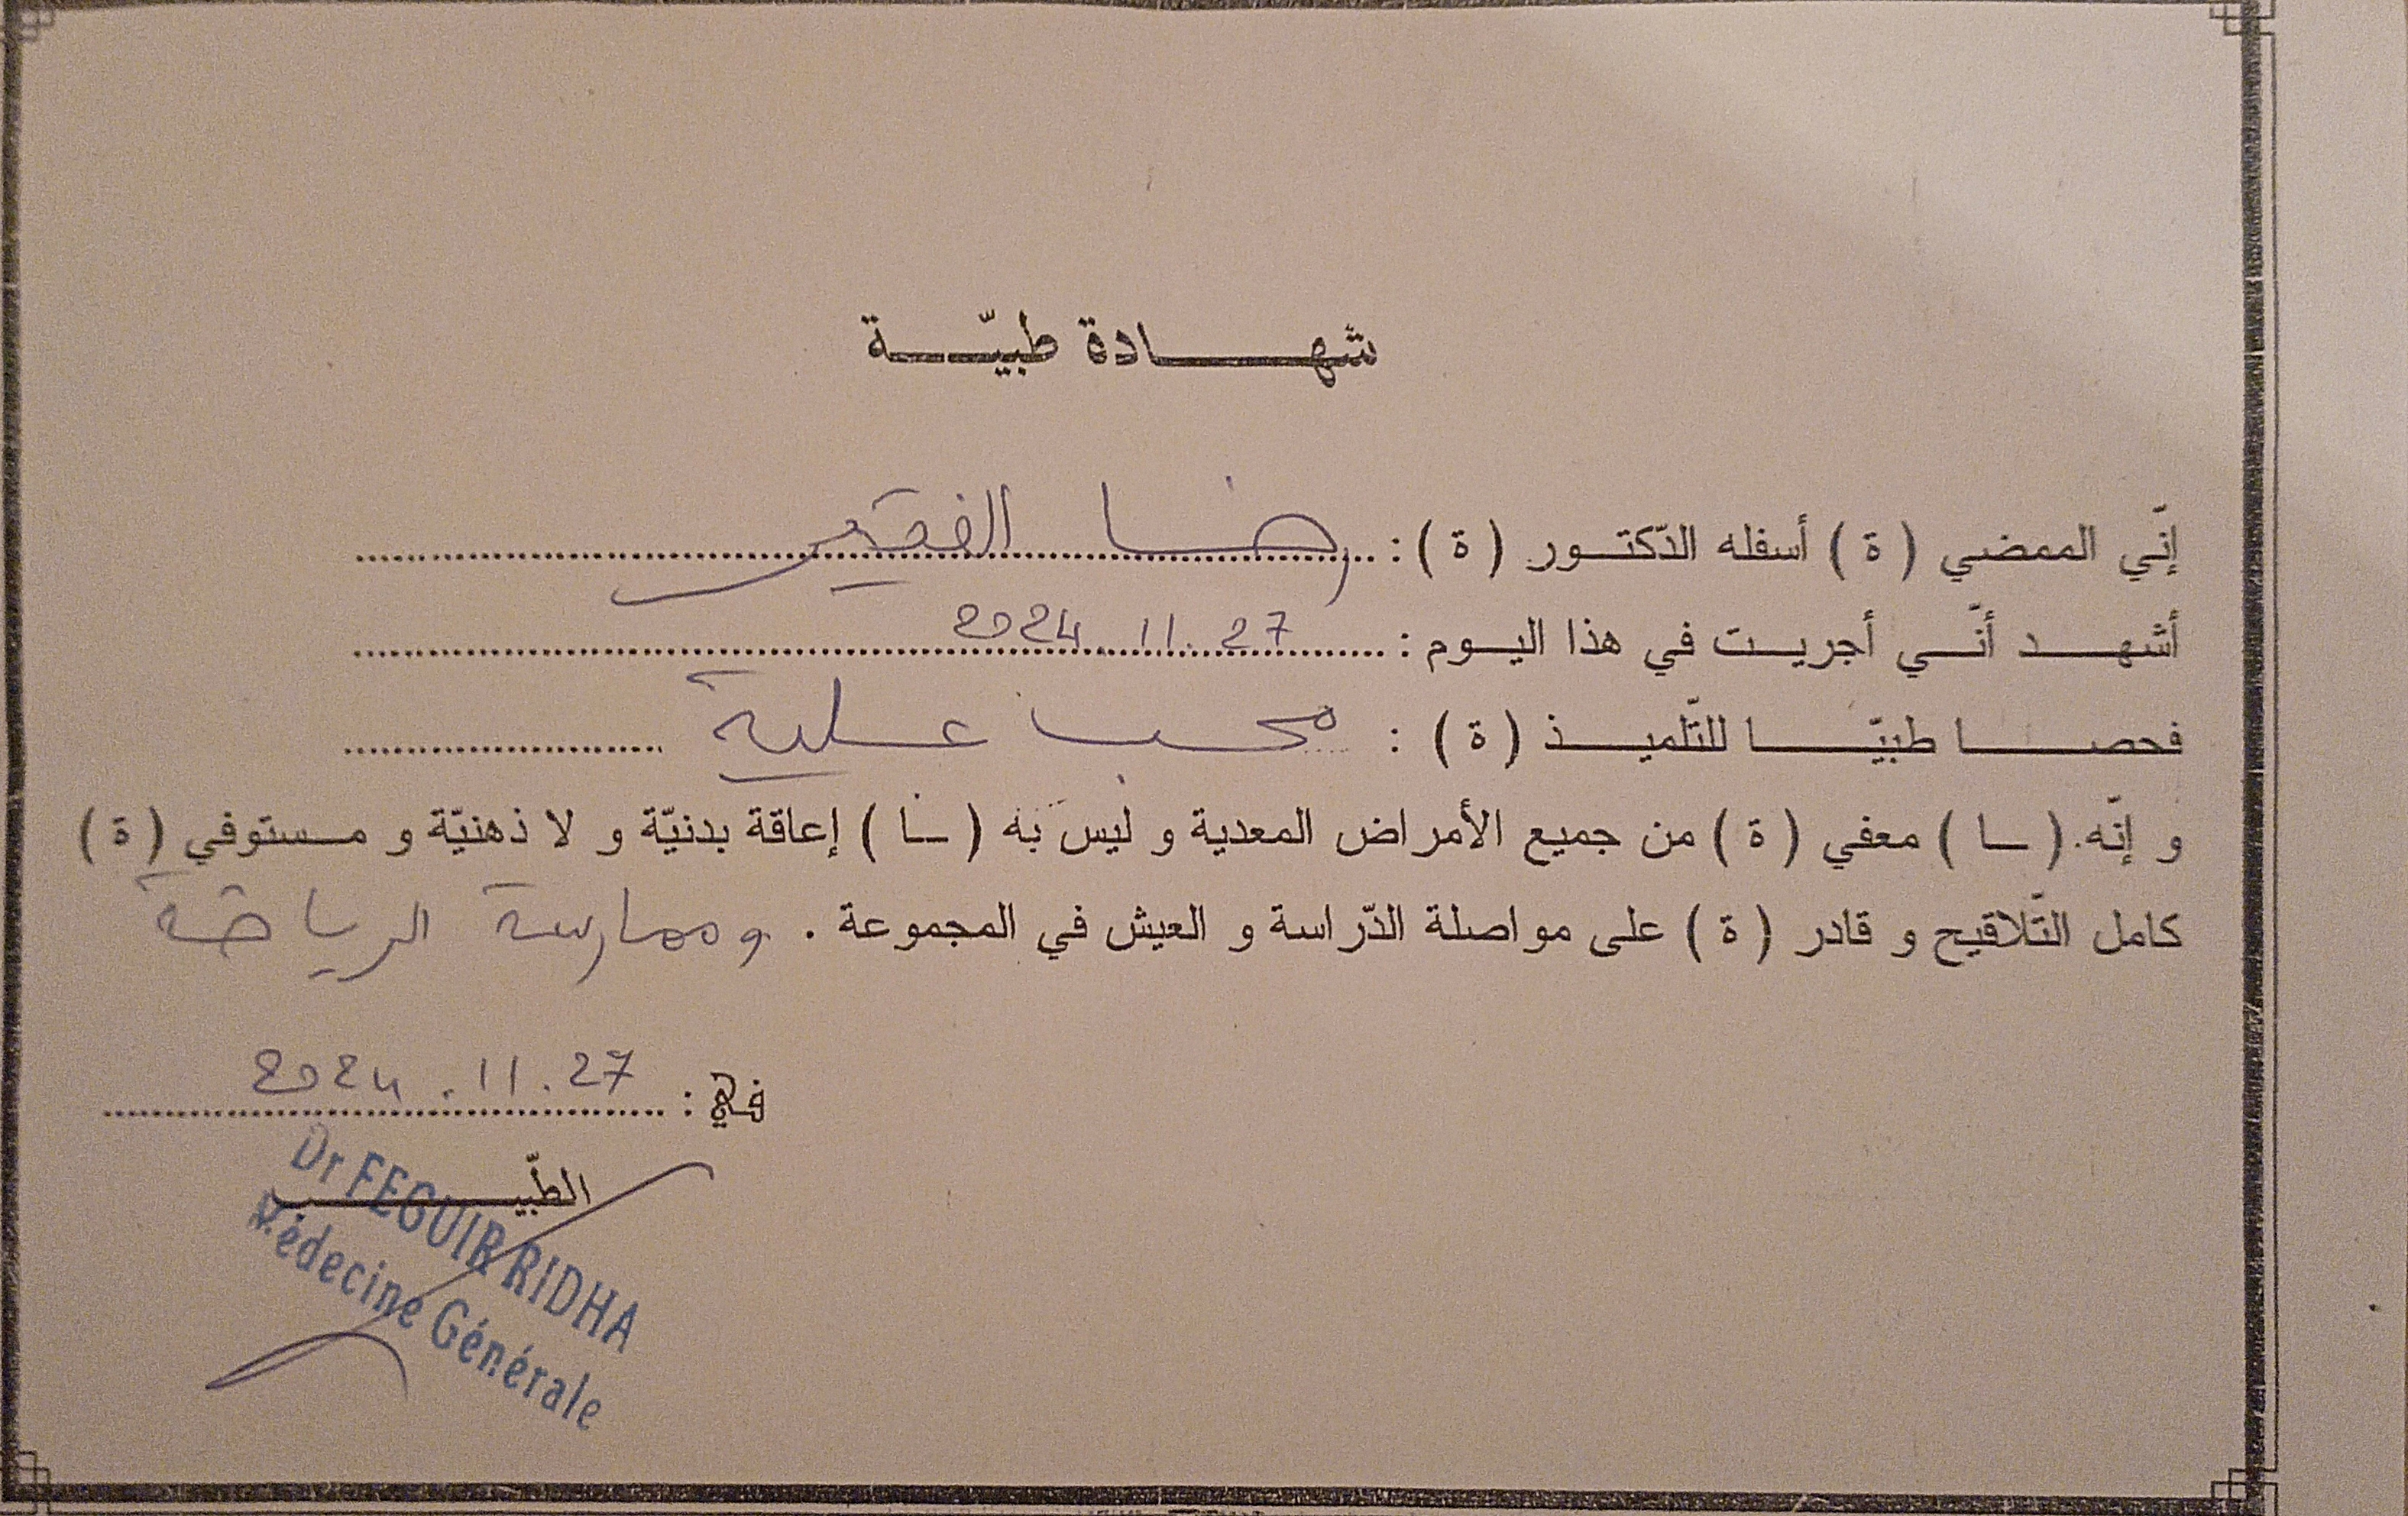 شهادة طبيّة
إنّي الممضي ( ة ) أسفله الدّكتور ( ة ) : رضا الفقير
أشهد أنّي أجريت في هذا اليوم : 2024.11.27
فحصا طبيّا للتّلميذ ( ة ) : محب علية
و إنّه ( ـا ) معفي ( ة ) من جميع الأمراض المعدية و ليس به ( ـا ) إعاقة بدنيّة و لا ذهنيّة و مستوفي ( ة )
كامل التّلاقيح و قادر ( ة ) على مواصلة الدّراسة و العيش في المجموعة . وممارسة الرياضة
في : 2024.11.27
الطّبيب
Dr FEGUIR RIDHA
Médecine Générale